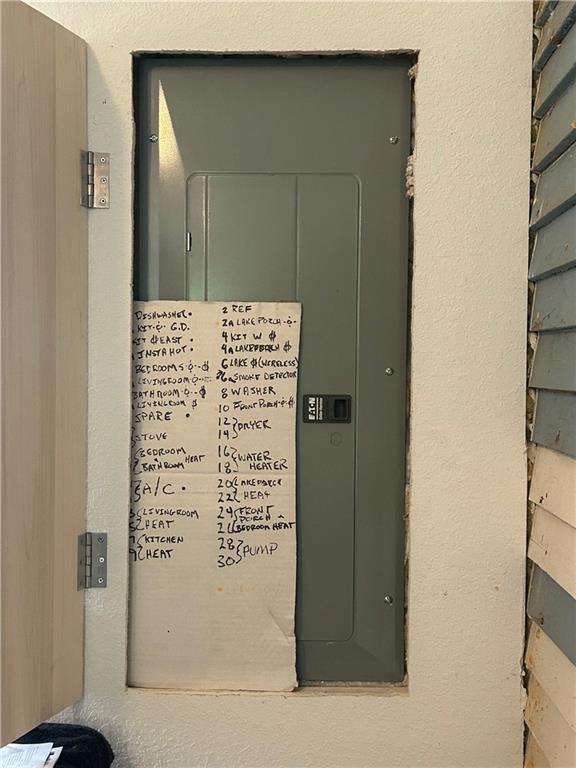 DISHWASHER
KIT G.D.
KIT EAST
INSTA HOT
BEDROOMS
LIVINGROOM
BATHROOM
LIVINGROOM
SPARE
STOVE
BEDROOM
BATHROOM HEAT
A/C
LIVINGROOM
HEAT
KITCHEN
HEAT
2 REF
2A LAKE PORCH
4 KIT W
4A LAKE PORCH
6 LAKE (WIRELESS)
SMOKE DETECTOR
8 WASHER
10 FRONT PORCH
12
14 DRYER
16 WATER
18 HEATER
20 LAKE PORCH
22 HEAT
24 FRONT PORCH
BEDROOM HEAT
28
30 PUMP
EATON